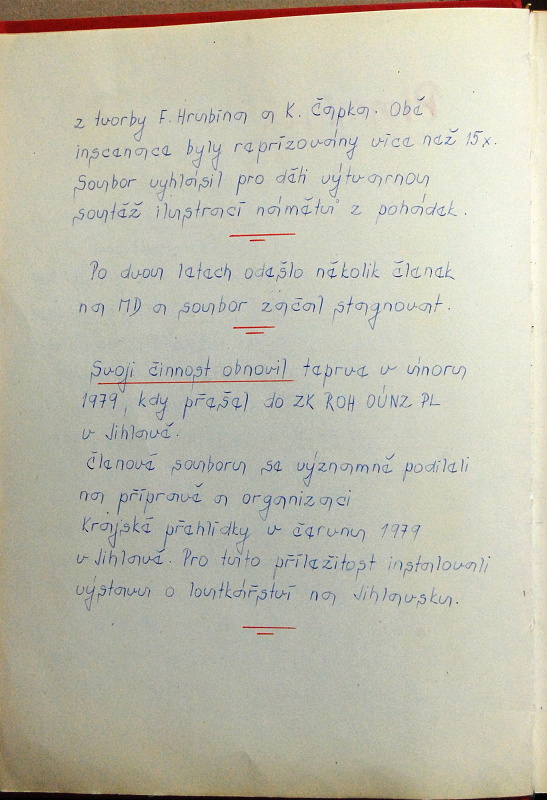 z tvorby F. Hrubína a K. Čapka. Obě
inscenace byly reprízovány více než 15x.
Soubor vyhlásil pro děti výtvarnou
soutěž ilustrací námětů z pohádek.
Po dvou letech odešlo několik členek
na MD a soubor začal stagnovat.
Svoji činnost obnovil teprve v únoru
1979, kdy přešel do ZK ROH OÚNZ PL
v Jihlavě.
Členové souboru se významně podíleli
na přípravě a organizaci
Krajské přehlídky v červnu 1979
v Jihlavě. Pro tuto příležitost instalovali
výstavu o loutkářství na Jihlavsku.